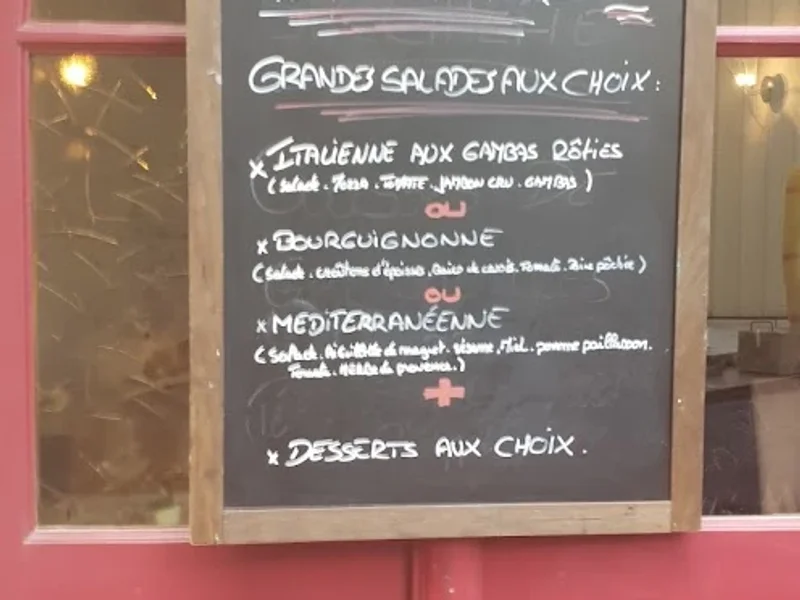 GRANDES SALADES AUX CHOIX :
x ITALIENNE AUX GAMBAS RÔTIES
( Salade . . TOMATE . JAMBON CRU . GAMBAS )
OU
x BOURGUIGNONNE
( Salade . croûtons d'époisses . de cassis . Tomate . Poire pochée )
OU
x MEDITERRANÉENNE
( Salade . Aiguillette de magret . sésame . Miel . pomme paillasson .
Tomate . Herbe de provence . )
+
x DESSERTS AUX CHOIX .